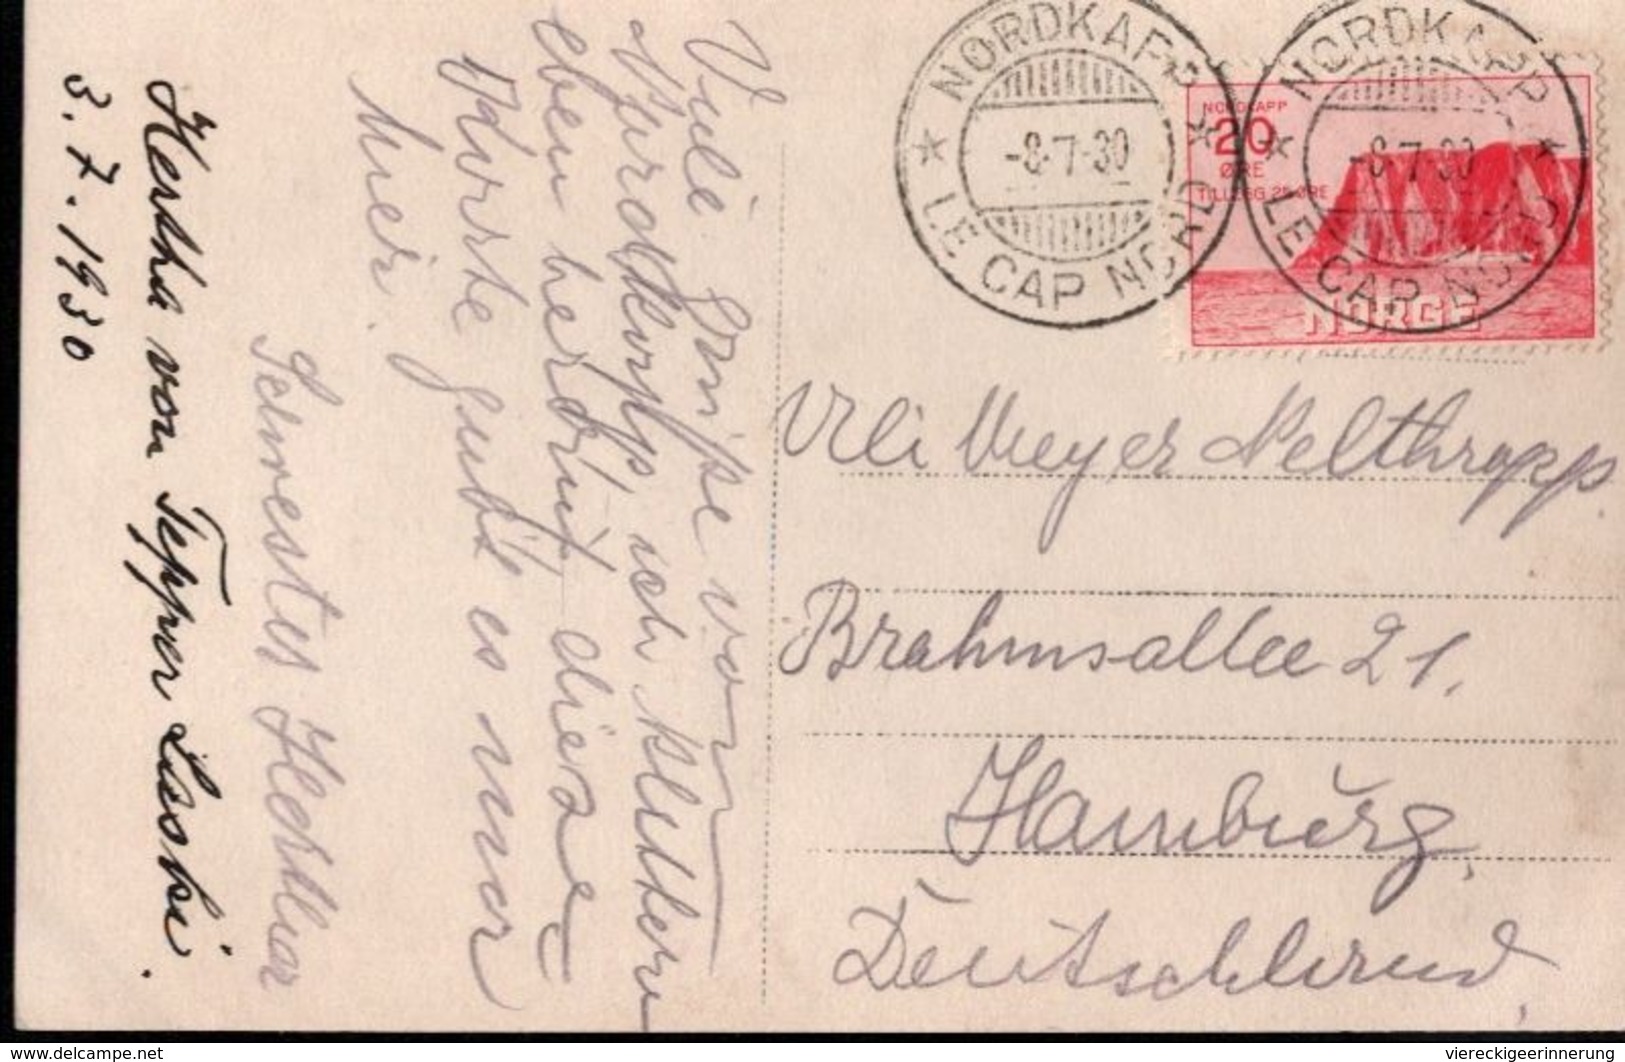 Viele Grüße vom
Nordkapp, ich klettere
eben herauf, diese
Karte gebt es nur
hier.
Schwester Hertha
Hertha von Tepper Laski.
3.7.1930
NORDKAPP
-8-7-30
LE CAP NORD
NORDKAPP
-8-7-30
LE CAP NORD
NORDKAPP
20
ØRE
TILLEGG 25 ØRE
NORGE
Uli Meyer Nelthropp.
Brahmsallee 21.
Hamburg,
Deutschland,
www.delcampe.net
viereckigeerinnerung